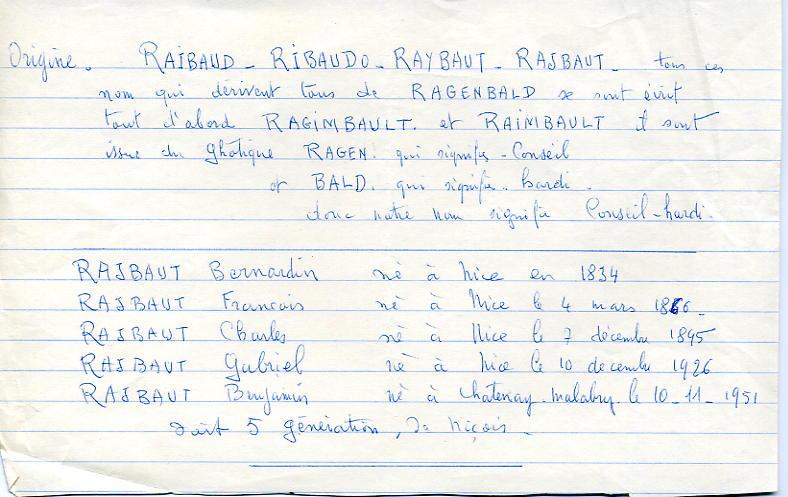 Origine. RAIBAUD - RIBAUDO - RAYBAUT - RAJBAUT - tous ces
nom qui dérivent tous de RAGENBALD se sont écrit
tout d'abord RAGIMBAULT. et RAIMBAULT et sont
issue du ghotique RAGEN. qui signifie - Conseil
et BALD. qui signifie - hardi.
donc notre nom signifie Conseil-hardi.
RAJBAUT Bernardin né à Nice en 1834
RAJBAUT Francois né à Nice le 4 mars 1866 -
RAJBAUT Charles né à Nice le 7 décembre 1895
RAJBAUT Gabriel né à Nice le 10 decembre 1926
RAJBAUT Benjamin né à Chatenay-malabry le 10-11-1951
soit 5 génération, de Niçois -